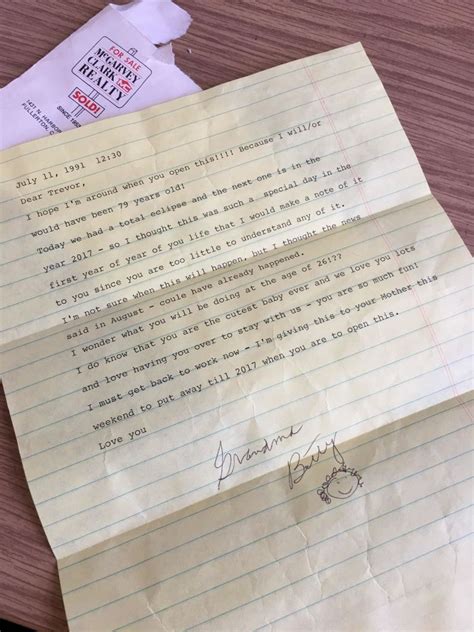 FOR SALE
McGARVEY
CLARK MC
REALTY
SOLD!
SINCE 195
1421 N. HARBOR
FULLERTON, C
July 11, 1991 12:30
Dear Trevor,
I hope I'm around when you open this!!!! Because I will/or
would have been 79 years old!
Today we had a total eclipse and the next one is in the
year 2017 - so I thought this was such a special day in the
first year of year of you life that I would make a note of it
to you since you are too little to understand any of it.
I'm not sure when this will happen, but I thought the news
said in August - coule have already happened.
I wonder what you will be doing at the age of 26!??
I do know that you are the cutest baby ever and we love you lots
and love having you over to stay with us - you are so much fun!
I must get back to work now - I'm giving this to your Mother this
weekend to put away till 2017 when you are to open this.
Love you
Grandma Betty